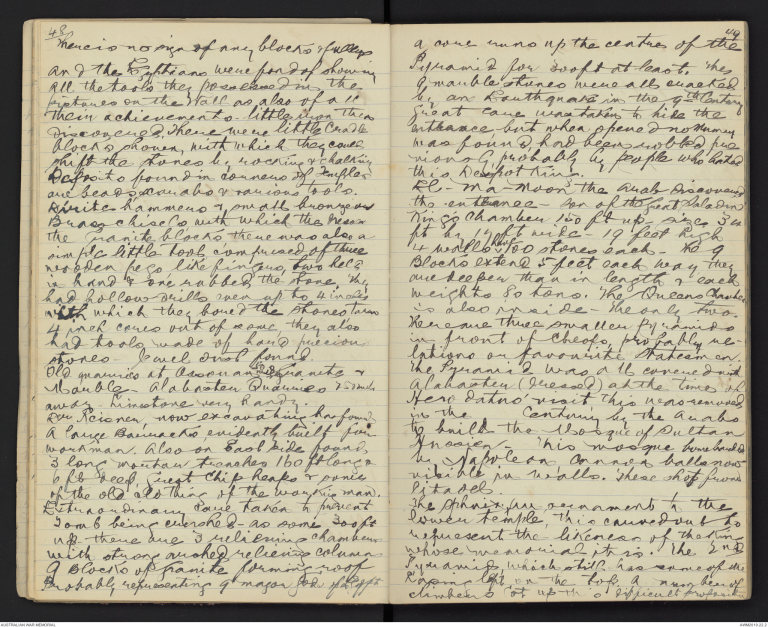 48
There is no sign of any blocks & pulleys
and the Egyptians were fond of showing
all the tools they possessed in the
pictures on the wall as also of all
their achievements. little upon their
discoveries. There were little Crade
blocks shown, with which they could
shift the stones by rocking & chalking
Deposits found in corners of Temples
are beads scarabs & various tools.
Diorite hammers & small bronze or
Brass chisels with which the
the Granite blocks there was also a
simple little tool comprised of three
wooden pegs like fingers, two held
in hand & one rubbed the stone. They
had hollow drills even up to 4 inches
with which they bored the stones
4 inch cores out of same, they also
had tools made of hard precious
stones - jewel dust found.
Old quarries at Assouan for Granite &
Marble - Alabaster Quarries miles
away. Limestone very handy.
Dr Reisner, now excavating has found
A large Barracks, evidently built for
workman. Also on East side found
3 long mortar trenches 160 ft long &
6 ft deep, great chip heaps &
of the old clothing of the working man.
Extraordinary care taken to prevent
Tomb being crushed - as some 300 ft
up - there are 3 relieving chambers
with strong arched relieving columns
9 Blocks of Granite forming roof
Probably representing 9 major Gods of Egypt
49
a core runs up the centre of the
Pyramid for 300 ft at least. The
9 marble stones were all cracked
by an Earthquake in the 9th Century
Great care was taken to hide the
entrance but when opened no Mummy
was found, had been robbed pre
viously, probably by people who hated
this Despot King.
El-Ma-Moon, the Arab discovered
the entrance - son of the Great Saladin
King's Chamber 150 ft up - size 34
ft by 17 ft wide - 19 feet high
4 walls have 100 stones each - the 9
Blocks extend 5 feet each way they
are deeper than in length & each
weights 80 tons. The Queens Chamber
is also inside - the only two.
There are three smaller Pyramids
in front of Cheops, probably re-
lations or favourite Statesmen.
The Pyramid was all covered with
Alabaster (Dressed) at the time of
Herodatus' visit this was removed
in the Century by the Arabs
to build the Mosque of Sultan
Hassien - This mosque bombarded
by Napoleon, Cannon balls now
visible in walls. These shot from
Citadel.
The Sphinx, an ornament to the
lower temple, this carved out to
represent the likeness of the King
whose memorial it is. The 2nd
Pyramid, which still has some of the
Coping left on the top. A number of
climbers at up this difficult
AUSTRALIAN WAR MEMORIAL